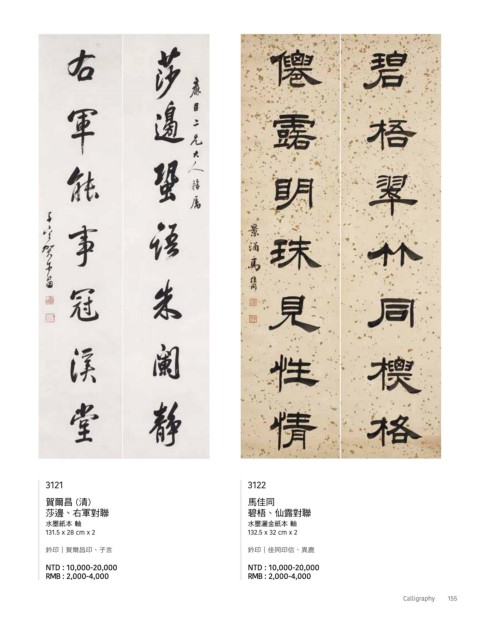 莎邊蛩語朱闌靜
右軍能事冠堂
碧梧翠竹同標格
僊露明珠見性情
3121
賀爾昌（清）
莎邊、右軍對聯
水墨紙本 軸
131.5 x 28 cm x 2
鈐印｜賀爾昌印、子言
NTD : 10,000-20,000
RMB : 2,000-4,000
3122
馬佳同
碧梧、仙露對聯
水墨灑金紙本 軸
132.5 x 32 cm x 2
鈐印｜佳同印信、異鹿
NTD : 10,000-20,000
RMB : 2,000-4,000
Calligraphy 155